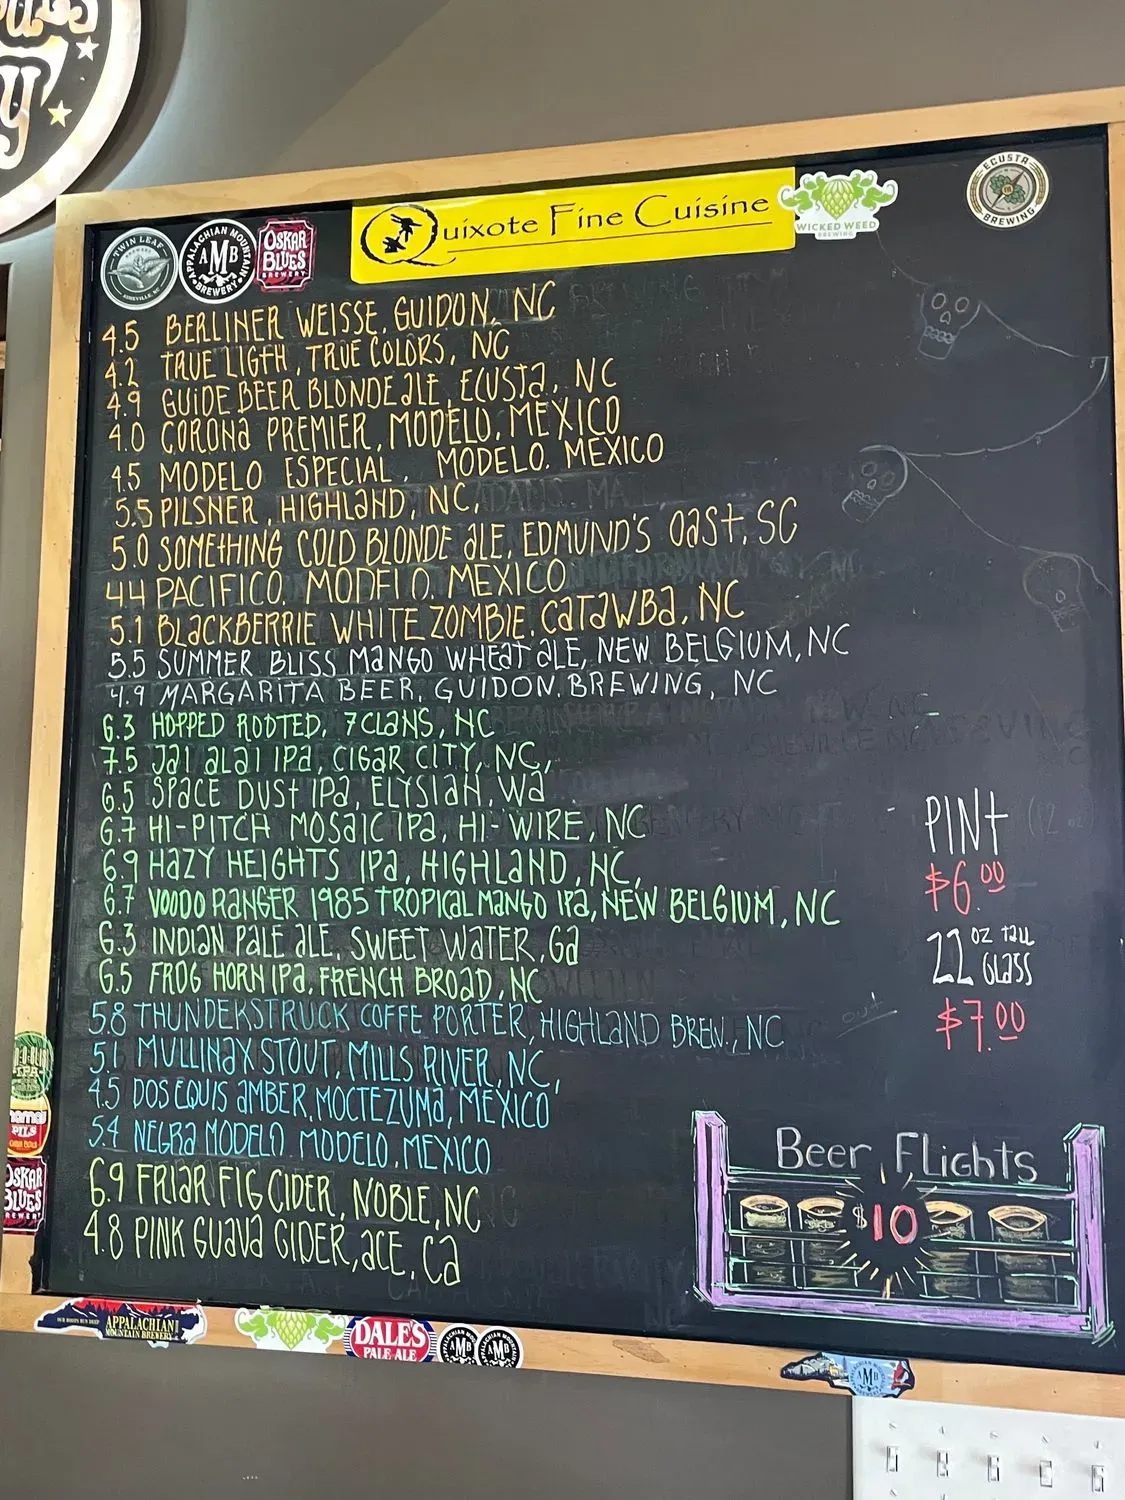 TWIN LEAF
BREWERY
ASHEVILLE, NC
APPALACHIAN MOUNTAIN
AMB
BREWERY
OSKAR
BLUES
BREWERY
Quixote Fine Cuisine
WICKED WEED
BREWING
ECUSTA
BREWING
4.5 BERLINER WEISSE, GUIDON, NC
4.2 TRUE LIGTH, TRUE COLORS, NC
4.9 GUIDE BEER BLONDE ALE, ECUSTA, NC
4.0 CORONA PREMIER, MODELO, MEXICO
4.5 MODELO ESPECIAL, MODELO. MEXICO
5.5 PILSNER, HIGHLAND, NC,
5.0 SOMETHING COLD BLONDE ALE, EDMUND'S OAST, SC
4.4 PACIFICO, MODELO, MEXICO
5.1 BLACKBERRIE WHITE ZOMBIE, CATAWBA, NC
5.5 SUMMER BLISS MANGO WHEAT ALE, NEW BELGIUM, NC
4.9 MARGARITA BEER, GUIDON. BREWING, NC
6.3 HOPPED ROOTED, 7 CLANS, NC
7.5 JAI ALAI IPA, CIGAR CITY, NC,
6.5 SPACE DUST IPA, ELYSIAN, WA
6.7 HI-PITCH MOSAIC IPA, HI-WIRE, NC
6.9 HAZY HEIGHTS IPA, HIGHLAND, NC,
6.7 VOODO RANGER 1985 TROPICAL MANGO IPA, NEW BELGIUM, NC
6.3 INDIAN PALE ALE, SWEET WATER, GA
6.5 FROG HORN IPA, FRENCH BROAD, NC
5.8 THUNDERSTRUCK COFFE PORTER, HIGHLAND BREW., NC
out
5.1 MULLINAX STOUT, MILLS RIVER, NC,
4.5 DOS EQUIS AMBER, MOCTEZUMA, MEXICO
5.4 NEGRA MODELO, MODELO, MEXICO
6.9 FRIAR FIG CIDER, NOBLE, NC
4.8 PINK GUAVA CIDER, ACE, CA
PINT
$6.00
22 oz TALL
GLASS
$7.00
Beer Flights
$10
IPA
PILS
OSKAR
BLUES
BREWERY
APPALACHIAN
MOUNTAIN BREWERY
DALE'S
PALE ALE
AMB
AMB
AMB